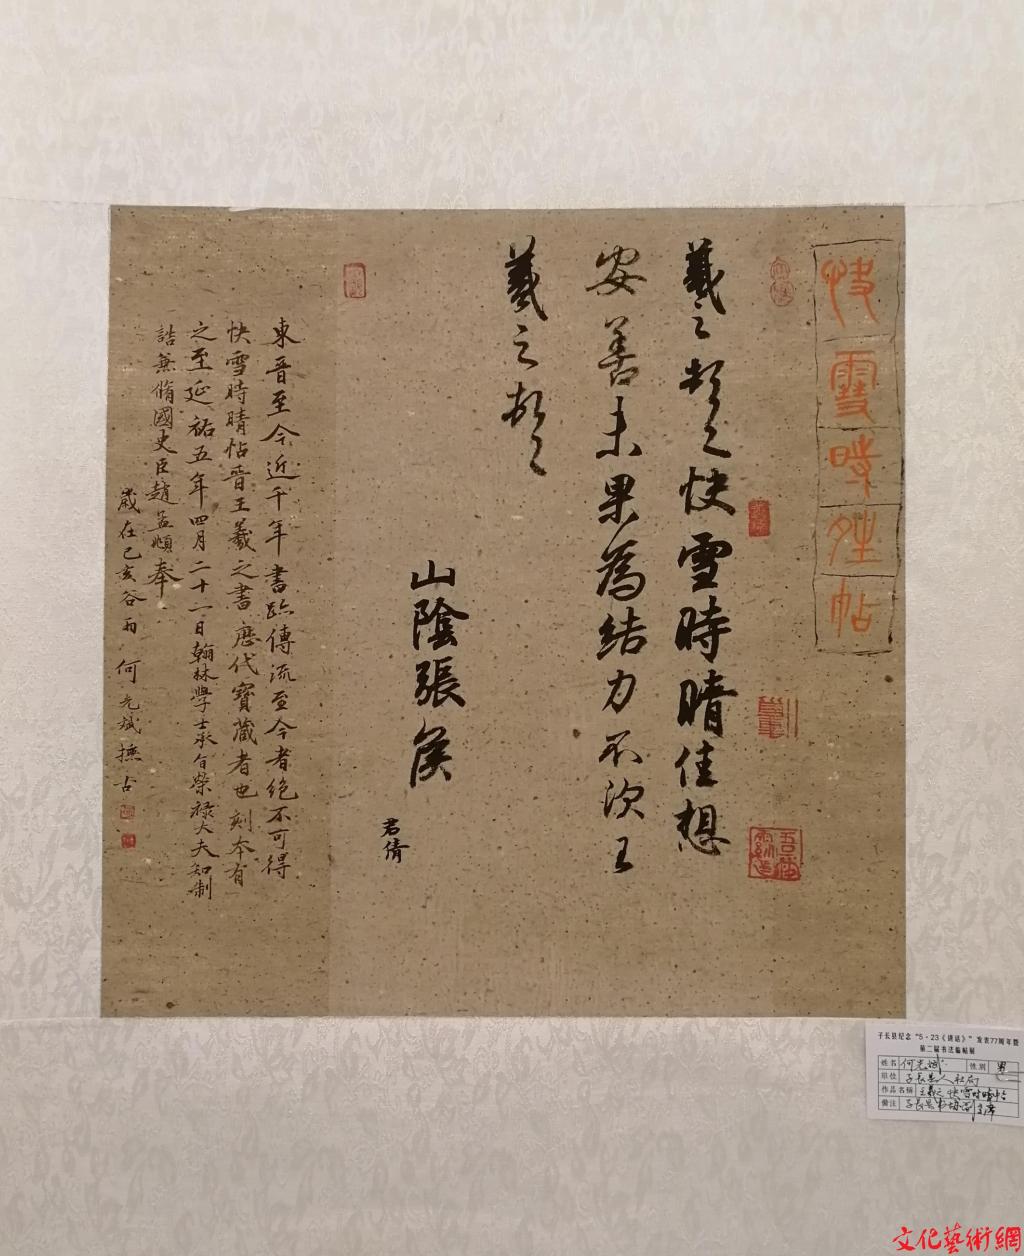 快雪時晴帖
羲之頓首快雪時晴佳想
安善未果為結力不次王
羲之頓首
山陰張侯
君倩
東晉至今近千年書跡傳流至今者絕不可得
快雪時晴帖晉王羲之書歷代寶藏者也刻本有
之至延祐五年四月二十一日翰林學士承旨榮祿大夫知制
誥兼脩國史臣趙孟頫奉
歲在己亥谷雨何光斌撫古
子长县纪念“5·23《讲话》”发表77周年暨
第二届书法临帖展
姓名 何光斌 性别 男
单位 子长县人社局
作品名称 王羲之快雪时晴帖
备注 子长县书协副主席
文化藝術網